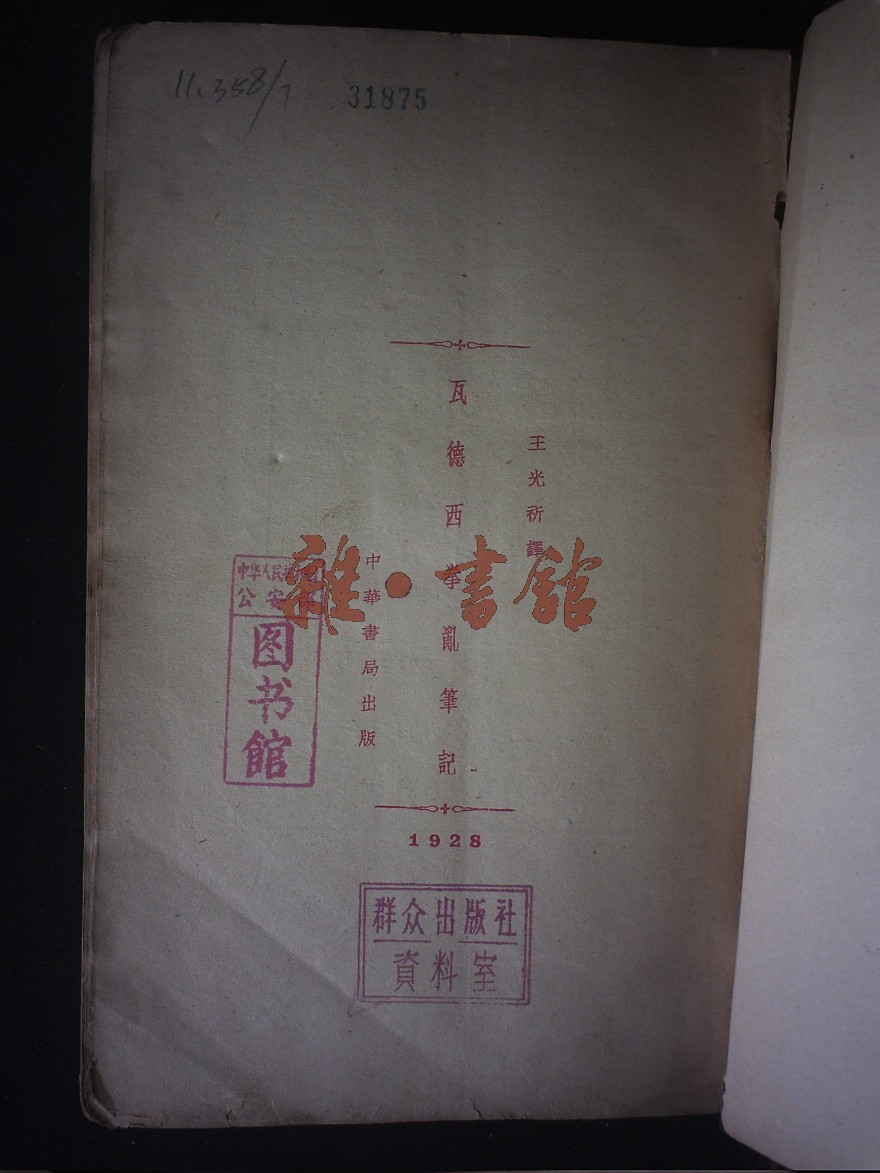 11.358/7
31875
王光祈譯
瓦德西拳亂筆記
中華書局出版
1928
中华人民共和国
公安部
图书館
群众出版社
資料室
雜·書館